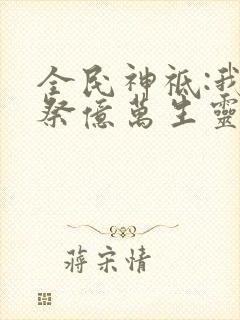 全民神祗:我
祭億萬生靈
蔣宋情